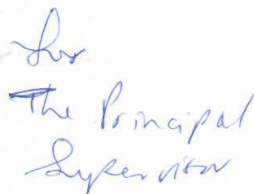 for
The Principal
Supervisor